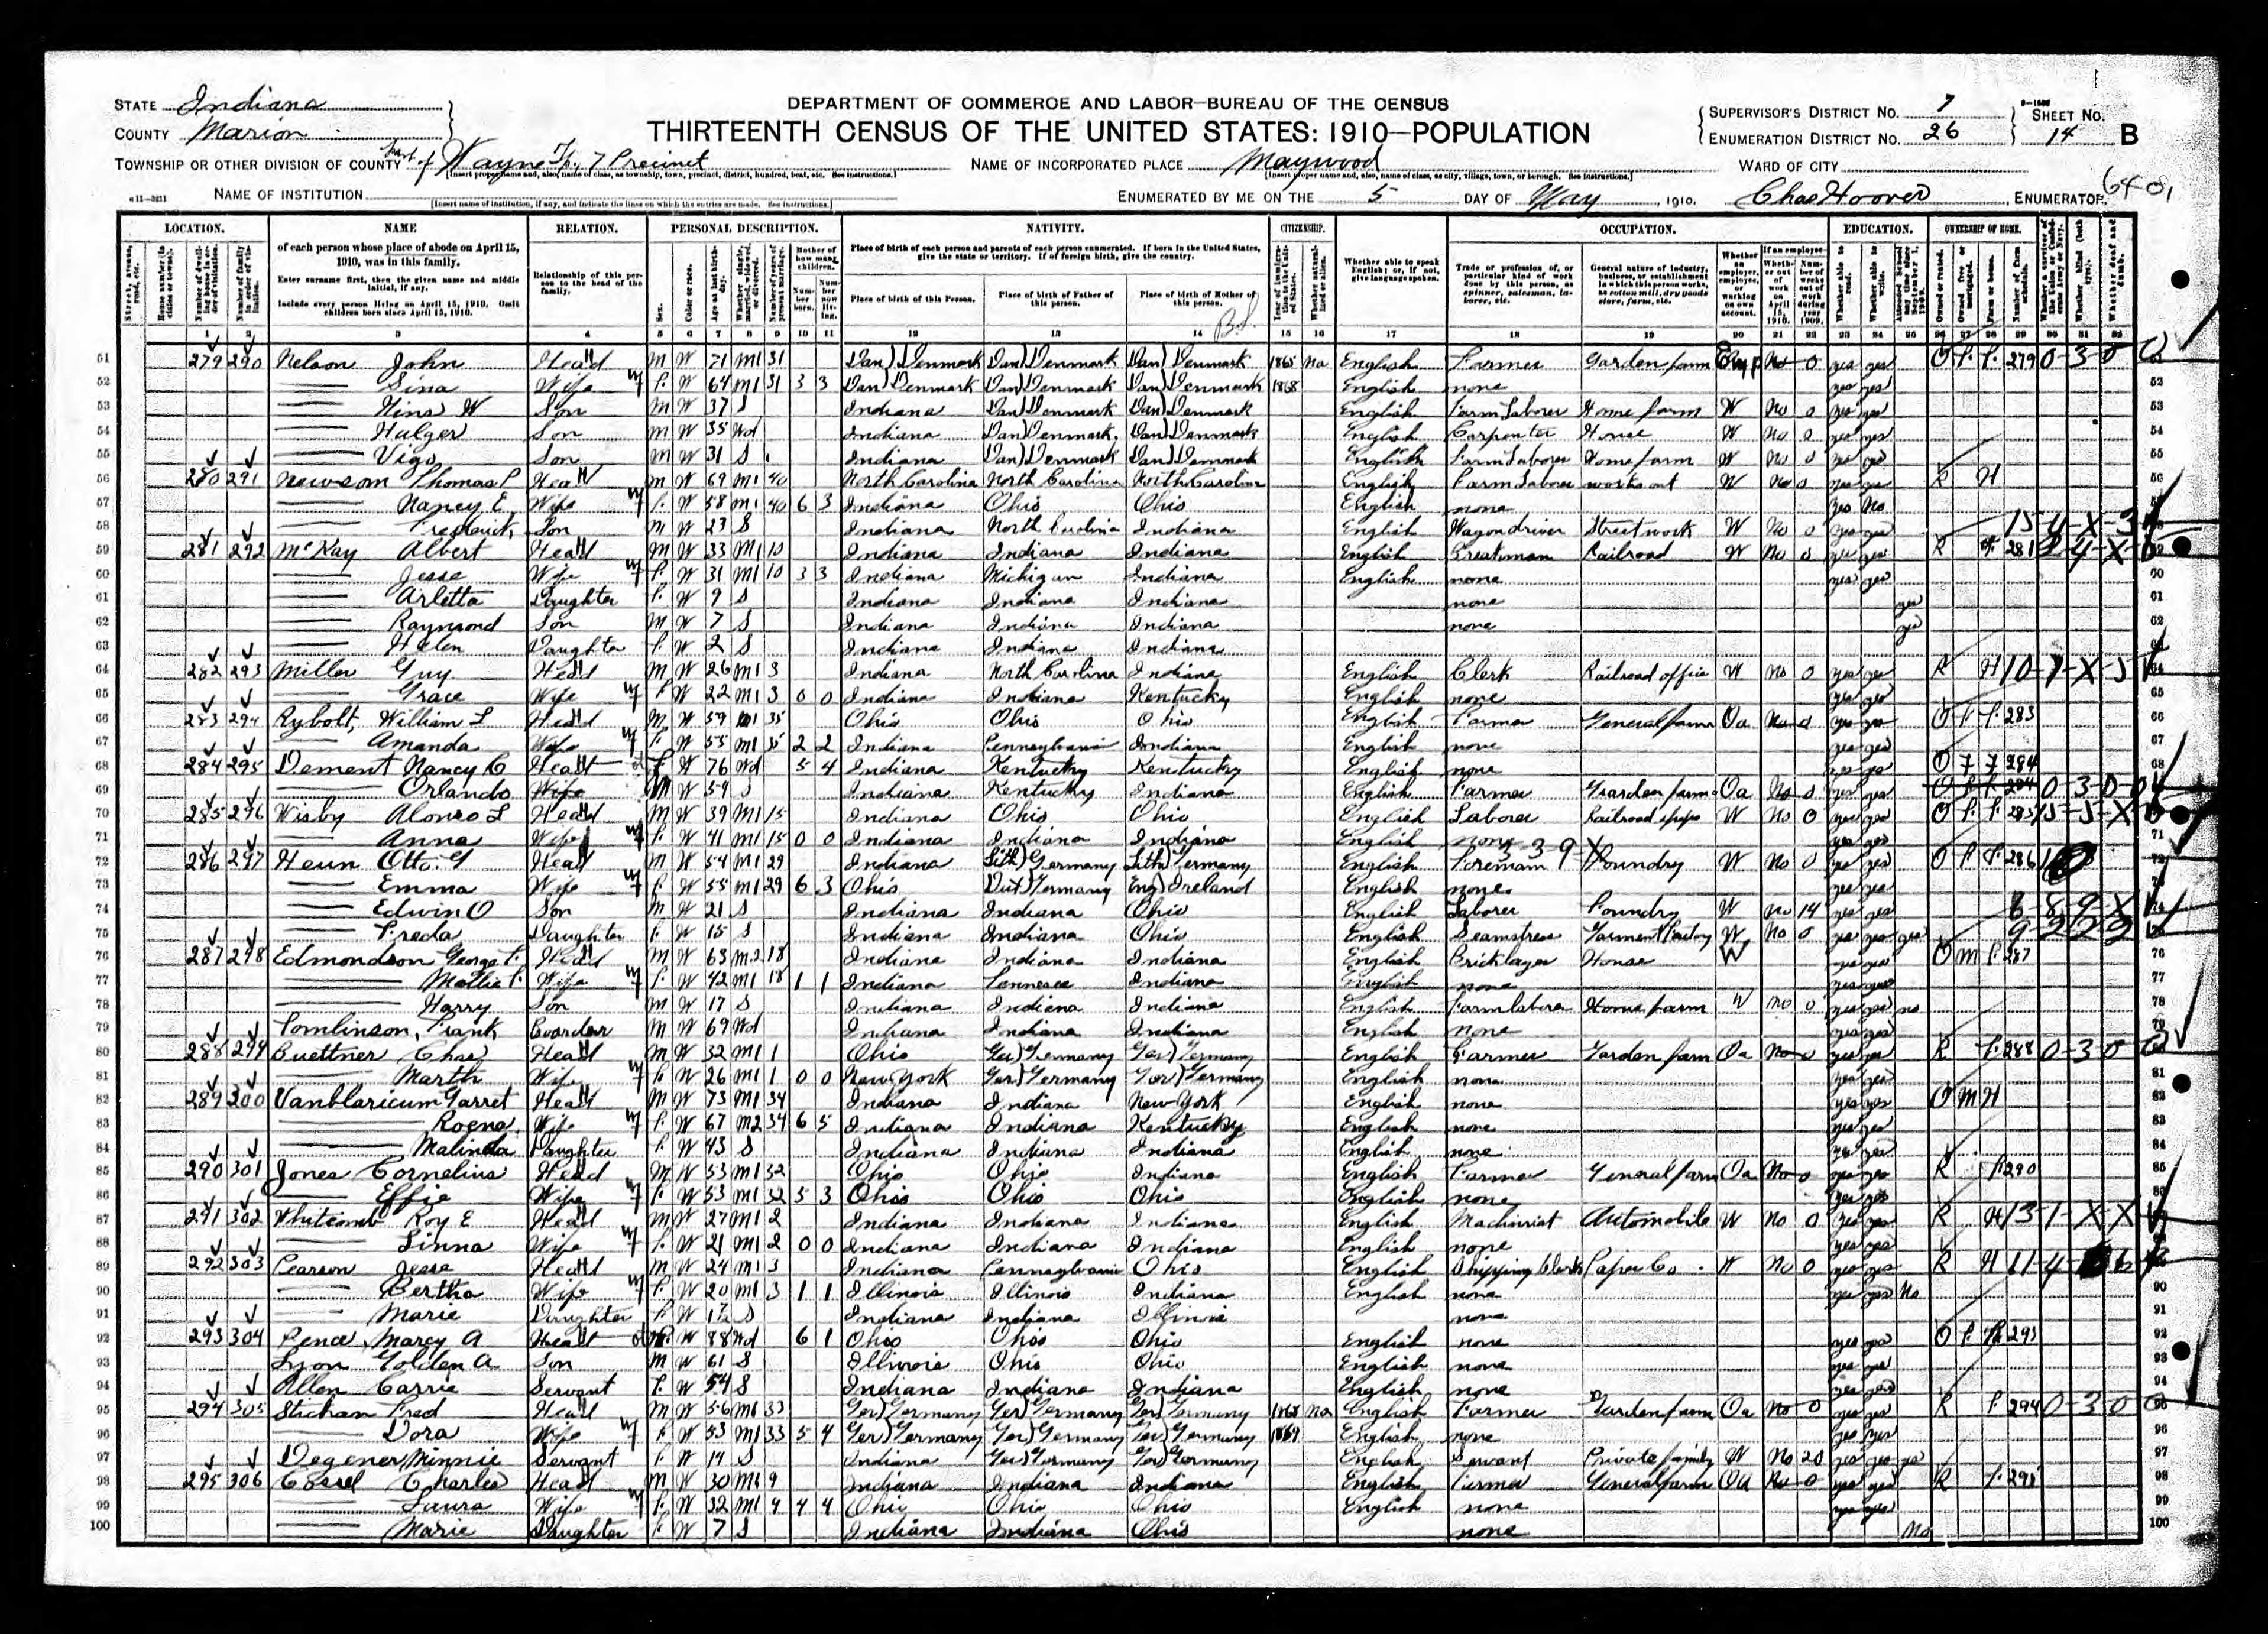 STATE Indiana
COUNTY Marion
DEPARTMENT OF COMMERCE AND LABOR—BUREAU OF THE CENSUS
THIRTEENTH CENSUS OF THE UNITED STATES: 1910—POPULATION
SUPERVISOR'S DISTRICT NO. 7
ENUMERATION DISTRICT NO. 26
SHEET NO. 14 B
TOWNSHIP OR OTHER DIVISION OF COUNTY Part of Wayne Tp. 7 Precinct
NAME OF INCORPORATED PLACE Maywood
WARD OF CITY
NAME OF INSTITUTION
ENUMERATED BY ME ON THE 5 DAY OF May, 1910. Chas Hoover, ENUMERATOR.
LOCATION. NAME RELATION. PERSONAL DESCRIPTION. NATIVITY. CITIZENSHIP. OCCUPATION. EDUCATION. OWNERSHIP OF HOME.
of each person whose place of abode on April 15, 1910, was in this family.
Enter surname first, then the given name and middle initial, if any.
Include every person living on April 15, 1910. Omit children born since April 15, 1910.
Relationship of this person to the head of the family.
Place of birth of each person and parents of each person enumerated. If born in the United States, give the state or territory. If of foreign birth, give the country.
Place of birth of this Person. Place of birth of Father of this person. Place of birth of Mother of this person.
Whether able to speak English; or, if not, give language spoken.
51 279 290 Nelson John Head M W 71 M1 31 Dan) Denmark Dan) Denmark Dan) Denmark 1865 Na English Farmer Garden farm Emp No 0 yes yes O F F 279 0-3-0
52 Sina Wife F W 64 M1 31 3 3 Dan) Denmark Dan) Denmark Dan) Denmark 1868 English none yes yes
53 W Son M W 37 S Indiana Dan) Denmark Dan) Denmark English Farm Laborer Home farm W No 0 yes yes
54 Halger Son M W 35 Wd Indiana Dan) Denmark Dan) Denmark English Carpenter House W No 0 yes yes
55 Vigo Son M W 31 S Indiana Dan) Denmark Dan) Denmark English Farm Laborer Home farm W No 0 yes yes
56 280 291 Newsom Thomas P Head M W 69 M1 40 North Carolina North Carolina North Carolina English Farm Laborer works out W No 0 yes yes R H
57 Nancy E Wife F W 58 M1 40 6 3 Indiana Ohio Ohio English none Yes No
58 Frederick Son M W 23 S Indiana North Carolina Indiana English Wagon driver Street work W No 0 yes yes
59 281 292 McKay Albert Head M W 33 M1 10 Indiana Indiana Indiana English Breakman Railroad W No 0 yes yes R 281
60 Jesse Wife F W 31 M1 10 3 3 Indiana Michigan Indiana English none yes yes
61 Arletta Daughter F W 9 S Indiana Indiana Indiana none yes
62 Raymond Son M W 7 S Indiana Indiana Indiana none yes
63 Helen Daughter F W 2 S Indiana Indiana Indiana
64 282 293 Miller Guy Head M W 26 M1 3 Indiana North Carolina Indiana English Clerk Railroad office W No 0 yes yes R H
65 Grace Wife F W 22 M1 3 0 0 Indiana Indiana Kentucky English none yes yes
66 283 294 Rybolt, William L Head M W 59 M1 35 Ohio Ohio Ohio English Farmer General farm Oa No 0 yes yes O F F 283
67 Amanda Wife F W 55 M1 35 2 2 Indiana Pennsylvania Indiana English none yes yes
68 284 295 Dement Nancy C Head F W 76 Wd 5 4 Indiana Kentucky Kentucky English none yes yes O F F 284
69 Orlando Wife M W 59 S Indiana Kentucky Indiana English Farmer Garden farm Oa No 0 yes yes 0-3-0
70 285 296 Wisby Alonzo L Head M W 39 M1 15 Indiana Ohio Ohio English Laborer Railroad shops W No 0 yes yes O F F 285
71 Anna Wife F W 41 M1 15 0 0 Indiana Indiana Indiana English none yes yes
72 286 297 Heun Otto G Head M W 54 M1 29 Indiana Germany Germany English Foreman Foundry W No 0 yes yes O F F 286
73 Emma Wife F W 55 M1 29 6 3 Ohio Germany Eng) Ireland English none yes yes
74 Edwin O Son M W 21 S Indiana Indiana Ohio English Laborer Foundry W No 14 yes yes
75 Freda Daughter F W 15 S Indiana Indiana Ohio English Seamstress Garment Factory W No 0 yes yes yes
76 287 298 Edmondson George F. Head M W 63 M2 18 Indiana Indiana Indiana English Bricklayer House W yes yes O M F 287
77 Mollie F. Wife F W 42 M1 18 1 1 Indiana Tennesee Indiana English none yes yes
78 Harry Son M W 17 S Indiana Indiana Indiana English Farm laborer Home farm W No 0 yes yes no
79 Tomlinson, Frank Boarder M W 69 Wd Indiana Indiana Indiana English none yes yes
80 288 299 Buettner Chas Head M W 32 M1 1 Ohio Ger) Germany Ger) Germany English Farmer Garden farm Oa No 0 yes yes R F 288 0-3-0
81 Marth Wife F W 26 M1 1 0 0 New York Ger) Germany Ger) Germany English none yes yes
82 289 300 Vanblaricum Garret Head M W 73 M1 34 Indiana Indiana New York English none yes yes O M H
83 Roena Wife F W 67 M2 34 6 5 Indiana Indiana Kentucky English none yes yes
84 Malinda Daughter F W 43 S Indiana Indiana Indiana English none yes yes
85 290 301 Jones Cornelius Head M W 53 M1 32 Ohio Ohio Indiana English Farmer General farm Oa No 0 yes yes R F 290
86 Effie Wife F W 53 M1 32 5 3 Ohio Ohio Ohio English none yes yes
87 291 302 Whitcomb Roy E Head M W 27 M1 2 Indiana Indiana Indiana English Machinist Automobile W No 0 yes yes R H
88 Linna Wife F W 21 M1 2 0 0 Indiana Indiana Indiana English none yes yes
89 292 303 Pearson Jesse Head M W 24 M1 3 Indiana Pennsylvania Ohio English Shipping Clerk Paper Co. W No 0 yes yes R H
90 Bertha Wife F W 20 M1 3 1 1 Illinois Illinois Indiana English none yes yes No
91 Marie Daughter F W S Indiana Indiana Illinois none
92 293 304 Pence, Marcy A Head F W 88 Wd 6 1 Ohio Ohio Ohio English none yes yes O F 293
93 Lyon Golden A Son M W 61 S Illinois Ohio Ohio English none yes yes
94 Allen Carrie Servant F W 54 S Indiana Indiana Indiana English none yes yes
95 294 305 Fred Head M W 56 M1 33 Ger) Germany Ger) Germany Ger) Germany 1868 na English Farmer Garden farm Oa No 0 yes yes R F 294 0-3-0
96 Dora Wife F W 53 M1 33 5 4 Ger) Germany Ger) Germany Ger) Germany 1869 English none yes yes
97 Degener, Minnie Servant F W 19 S Indiana Ger) Germany Ger) Germany English Servant Private family W No 20 yes yes yes
98 295 306 Cossel Charles Head M W 30 M1 9 Indiana Indiana Indiana English Farmer General farm Oa No 0 yes yes R F 295
99 Laura Wife F W 32 M1 9 4 4 Ohio Ohio Ohio English none yes yes
100 Marie Daughter F W 7 S Indiana Indiana Ohio none No